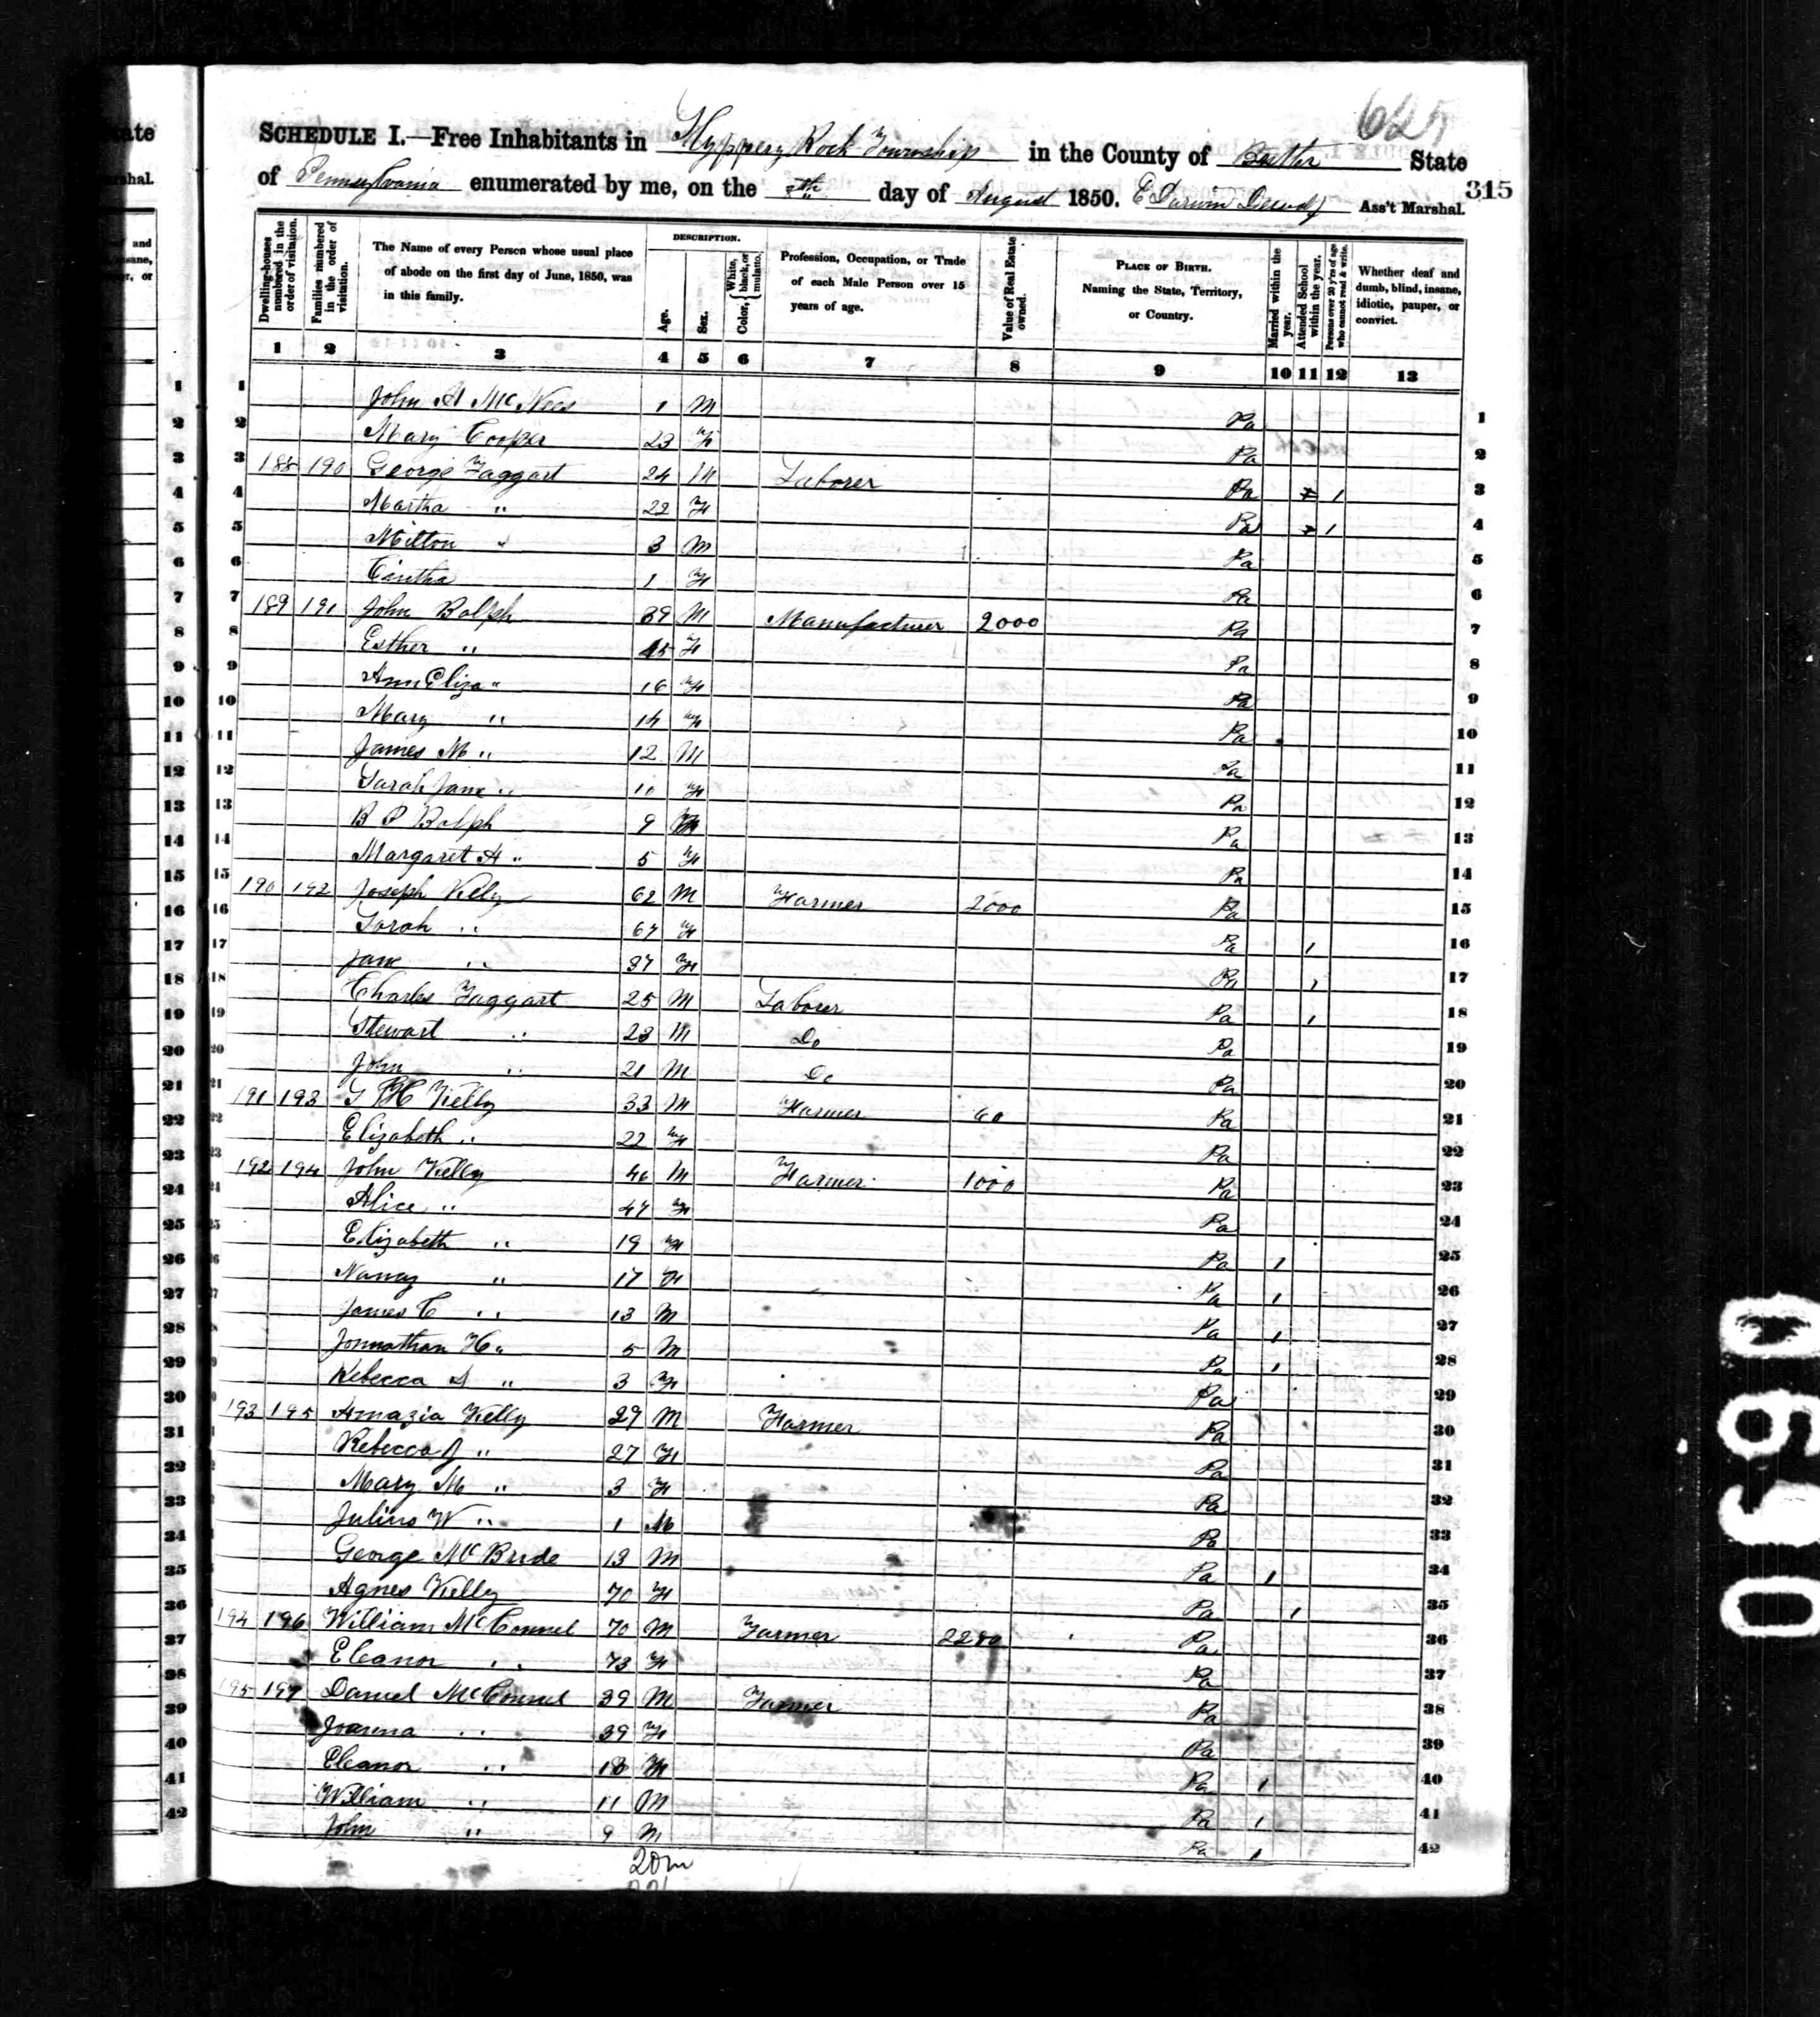 625
SCHEDULE I.—Free Inhabitants in Slyppery Rock Township in the County of Butler State
of Pennsylvania enumerated by me, on the 8th day of August 1850. E Darwin Ass't Marshal. 315
Dwelling-houses numbered in the order of visitation.
Families numbered in the order of visitation.
The Name of every Person whose usual place of abode on the first day of June, 1850, was in this family.
DESCRIPTION.
Age.
Sex.
Color, { White, black, or mulatto.
Profession, Occupation, or Trade of each Male Person over 15 years of age.
Value of Real Estate owned.
PLACE OF BIRTH. Naming the State, Territory, or Country.
Married within the year.
Attended School within the year.
Persons over 20 y'rs of age who cannot read & write.
Whether deaf and dumb, blind, insane, idiotic, pauper, or convict.
1 2 3 4 5 6 7 8 9 10 11 12 13
1 John A McNees 1 M Pa 1
2 Mary Cooper 23 F Pa 2
3 188 190 George Taggart 24 M Laborer Pa 1 3
4 Martha " 22 F Pa 1 4
5 Milton " 3 M Pa 5
6 Cintha 1 F Pa 6
7 189 191 John Bolph 39 M Manufacturer 2000 Pa 7
8 Esther " 45 F Pa 8
9 Ann Eliza " 16 F Pa 9
10 Mary " 14 F Pa 10
11 James M " 12 M Pa 11
12 Sarah Jane " 10 F Pa 12
13 B P Bolph 9 M Pa 13
14 Margaret A " 5 F Pa 14
15 190 192 Joseph Kelly 62 M Farmer 2000 Pa 15
16 Sarah " 67 F Pa 1 16
17 Jane " 37 F Pa 1 17
18 Charles Taggart 25 M Laborer Pa 1 18
19 Stewart " 23 M Do Pa 19
20 John " 21 M Do Pa 20
21 191 193 Kelly 33 M Farmer 60 Pa 21
22 Elizabeth " 22 F Pa 22
23 192 194 John Kelly 46 M Farmer 1000 Pa 23
24 Alice " 47 F Pa 24
25 Elizabeth " 19 F Pa 1 25
26 Nancy " 17 F Pa 1 26
27 James C " 13 M Pa 1 27
28 Jonnathan H " 5 M Pa 1 28
29 Rebecca A " 3 F Pa 29
30 193 195 Amazia Kelly 29 M Farmer Pa 30
31 Rebecca J " 27 F Pa 31
32 Mary M " 3 F Pa 32
33 Julius W " 1 M Pa 33
34 George McBride 13 M Pa 1 34
35 Agnes Kelly 70 F Pa 1 35
36 194 196 William McConnel 70 M Farmer Pa 36
37 Eleanor " 73 F Pa 37
38 195 197 Daniel McConnel 39 M Farmer Pa 38
39 Joanna " 39 F Pa 39
40 Eleanor " 13 F Pa 1 40
41 William " 11 M Pa 1 41
42 John " 9 M Pa 1 42
20m
0690